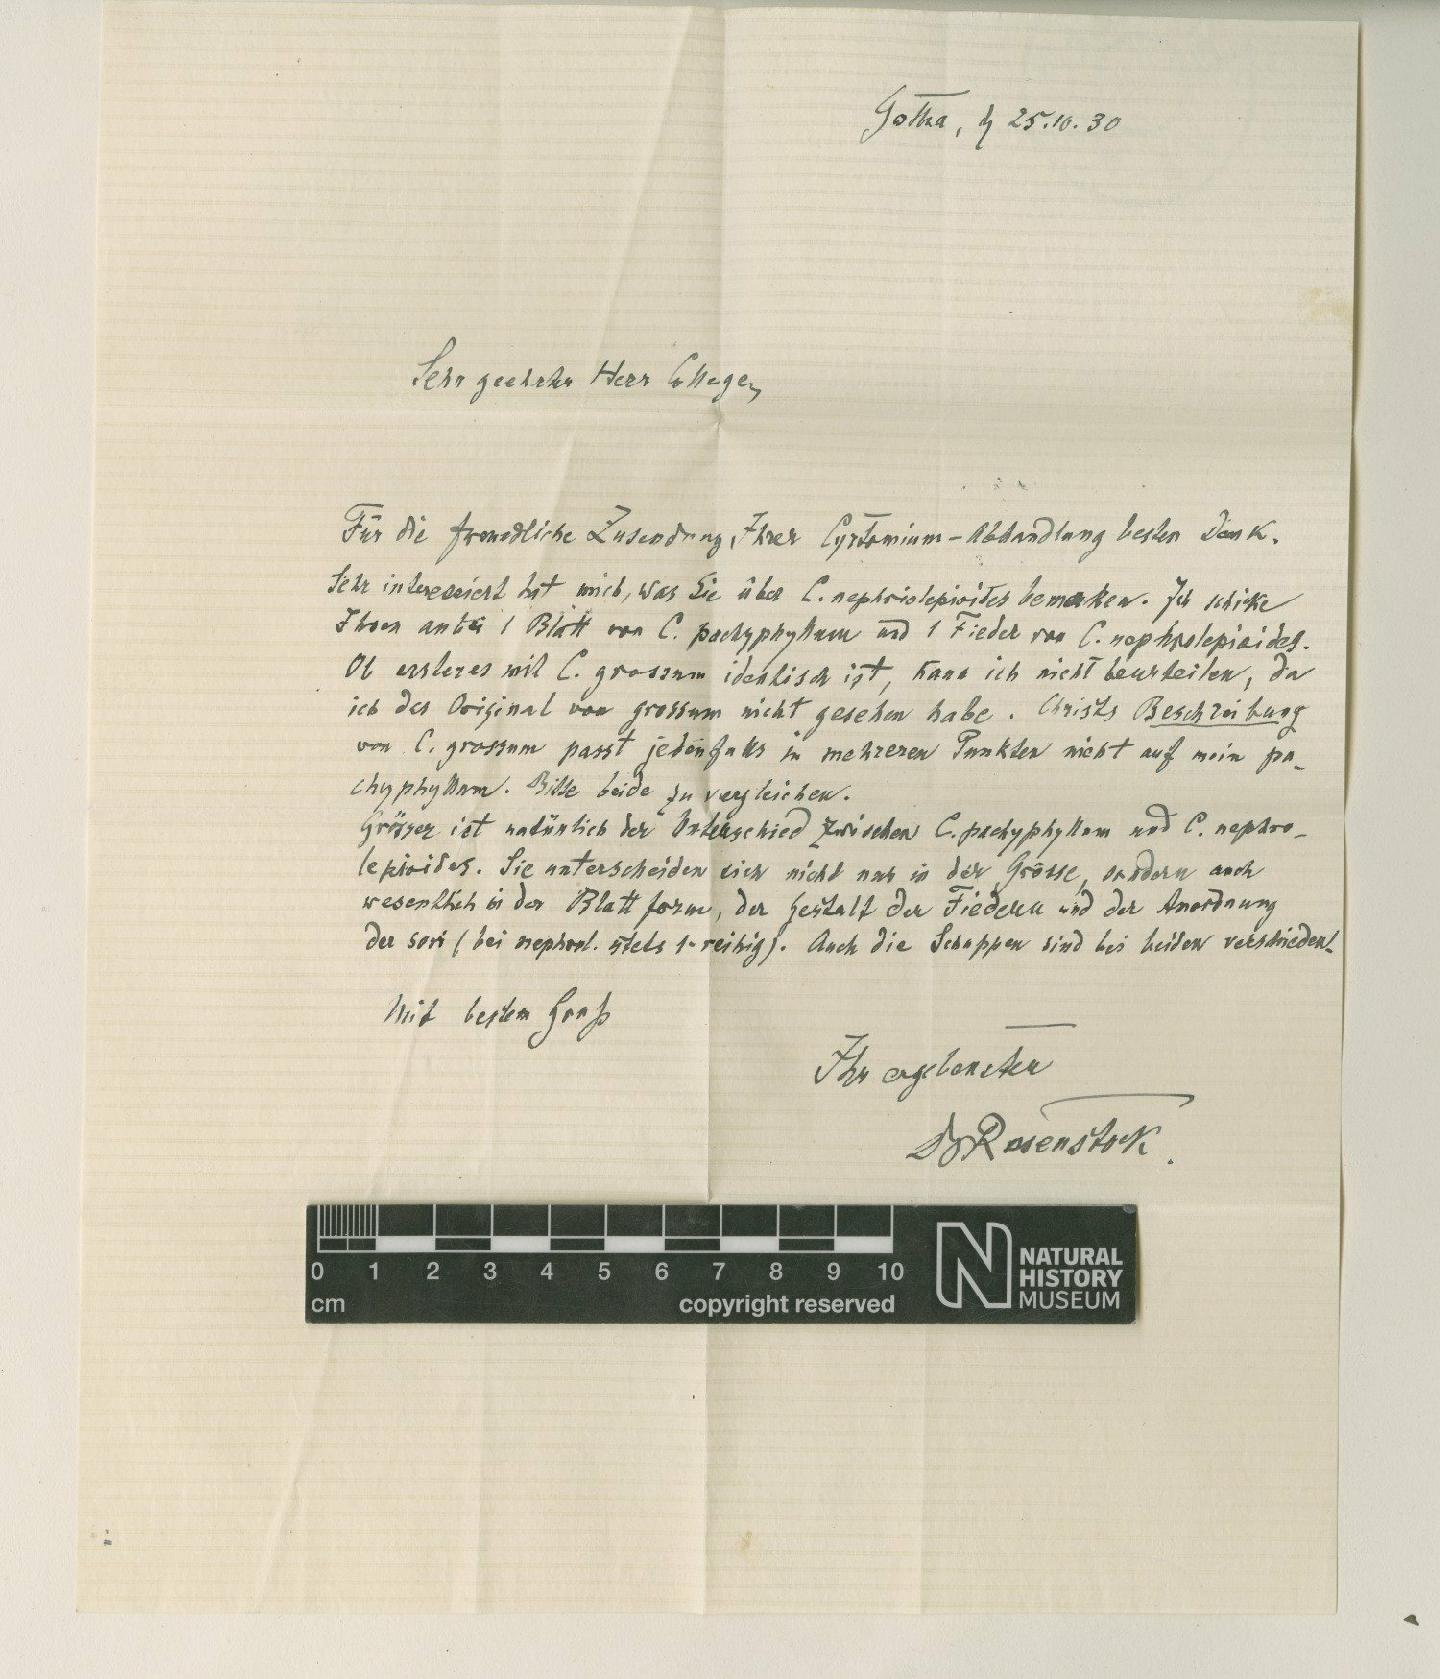 Gotha, d 25.10.30
Sehr geehrter Herr College,
Für die freundliche Zusendung Ihrer Cyrtomium-Abhandlung besten Dank.
Sehr interessiert hat mich, was Sie über C. nephrolepioides bemerken. Ich schicke
Ihnen anbei 1 Blatt von C. pachyphyllum und 1 Fieder von C. nephrolepioides.
Ob ersteres mit C. grossum identisch ist, kann ich nicht beurteilen, da
ich das Original von grossum nicht gesehen habe. Christs Beschreibung
von C. grossum passt jedenfalls in mehreren Punkten nicht auf mein pa-
chyphyllum. Bitte beide zu vergleichen.
Grösser ist natürlich der Unterschied zwischen C. pachyphyllum und C. nephro-
lepioides. Sie unterscheiden sich nicht nur in der Grösse, sondern auch
wesentlich in der Blattform, der Gestalt der Fiedern und der Anordnung
der sori (bei nephrol. stets 1-reihig). Auch die Schuppen sind bei beiden verschieden.
Mit bestem Gruß
Ihr ergebenster
Dr Rosenstock.
0 1 2 3 4 5 6 7 8 9 10
cm copyright reserved
NATURAL
HISTORY
MUSEUM